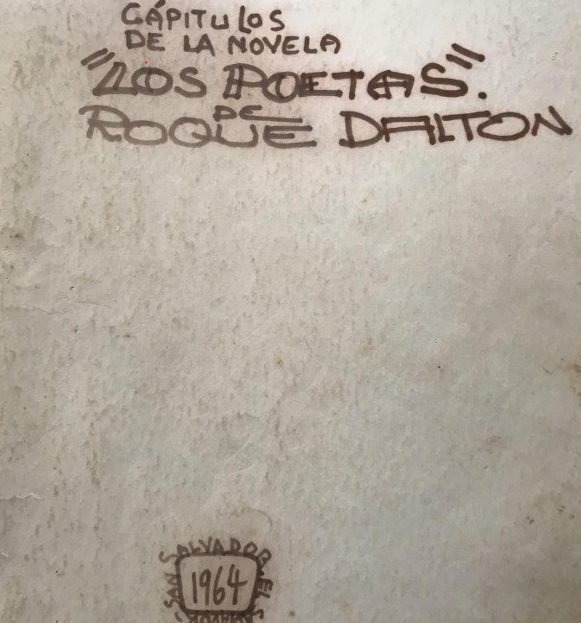 CÁPITULOS
DE LA NOVELA
"LOS POETAS".
DE
ROQUE DALTON
SAN SALVADOR, EL S
1964